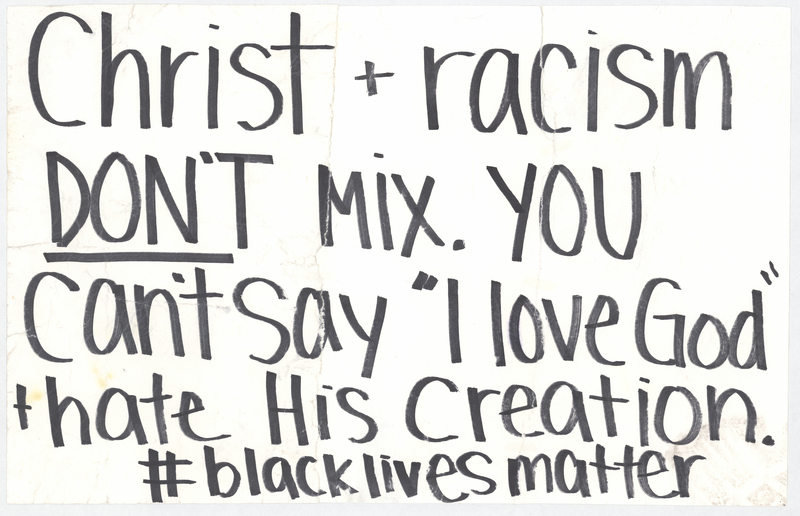 Christ + racism
DON'T MiX. YOU
Can't Say "I love God"
+ hate His Creation.
#blacklivesmatter